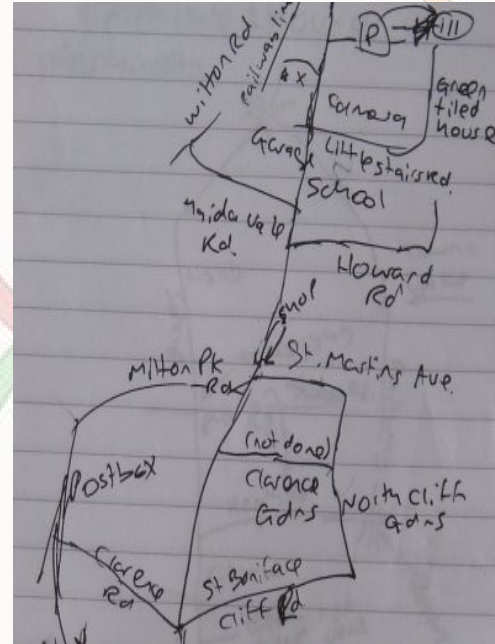 Wilton Rd
railway line
P
III
x
Camera
Green
tiled
house
Garage
Littlestairs rd.
School
Maida Vale
Rd.
Howard
Rd
St. Martins Ave.
Milton Pk
Rd
(not done)
Postbox
Clarence
Gdns
North Cliff
Gdns
Clarence
Rd
St Boniface
Cliff Rd